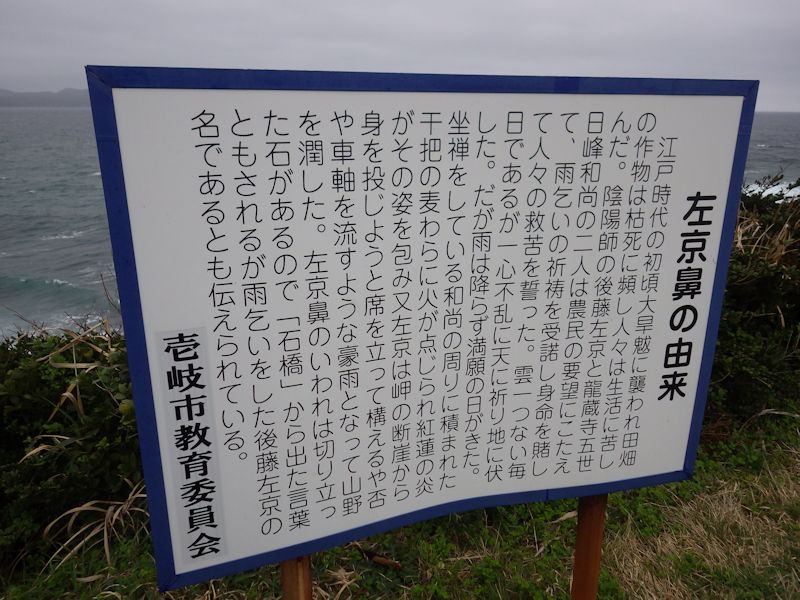 左京鼻の由来
江戸時代の初頃大旱魃に襲われ田畑
の作物は枯死に頻し人々は生活に苦し
んだ。陰陽師の後藤左京と龍蔵寺五世
日峰和尚の二人は農民の要望にこたえ
て、雨乞いの祈祷を受諾し身命を賭し
て人々の救苦を誓った。雲一つない毎
日であるが一心不乱に天に祈り地に伏
した。だが雨は降らず満願の日がきた。
坐禅をしている和尚の周りに積まれた
千把の麦わらに火が点じられ紅蓮の炎
がその姿を包み又左京は岬の断崖から
身を投じようと席を立って構えるや否
や車軸を流すような豪雨となって山野
を潤した。左京鼻のいわれは切り立っ
た石があるので「石橋」から出た言葉
ともされるが雨乞いをした後藤左京の
名であるとも伝えられている。
壱岐市教育委員会